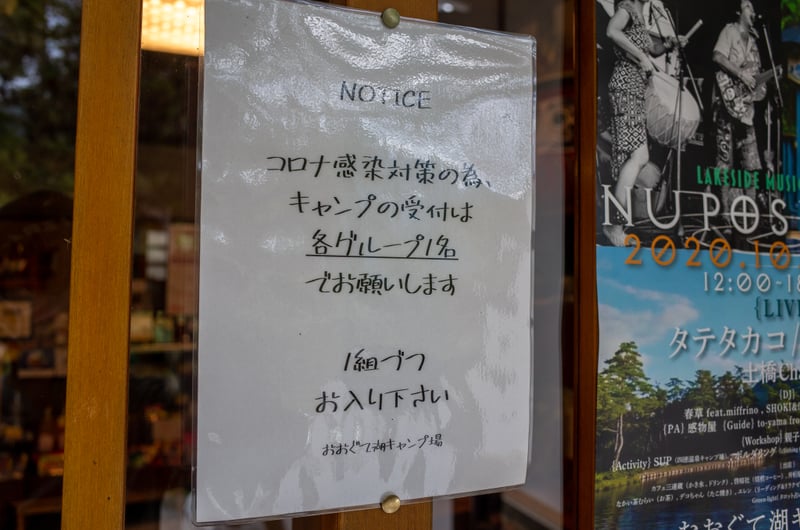 NOTICE
コロナ感染対策の為、
キャンプの受付は
各グループ1名
でお願いします
1組づつ
お入り下さい
おおぐて湖キャンプ場
LAKESIDE MUSI
NUPOS
2020.10
12:00-18
{LIV
タテタカコ /
土橋Ch
{DJ}
春草 feat.miffrino , SHOKI&
{PA} 感物屋 {Guide} to-yama fro
{Workshop} 親子
{Activity} SUP
ボルダリング
おおぐて湖キ